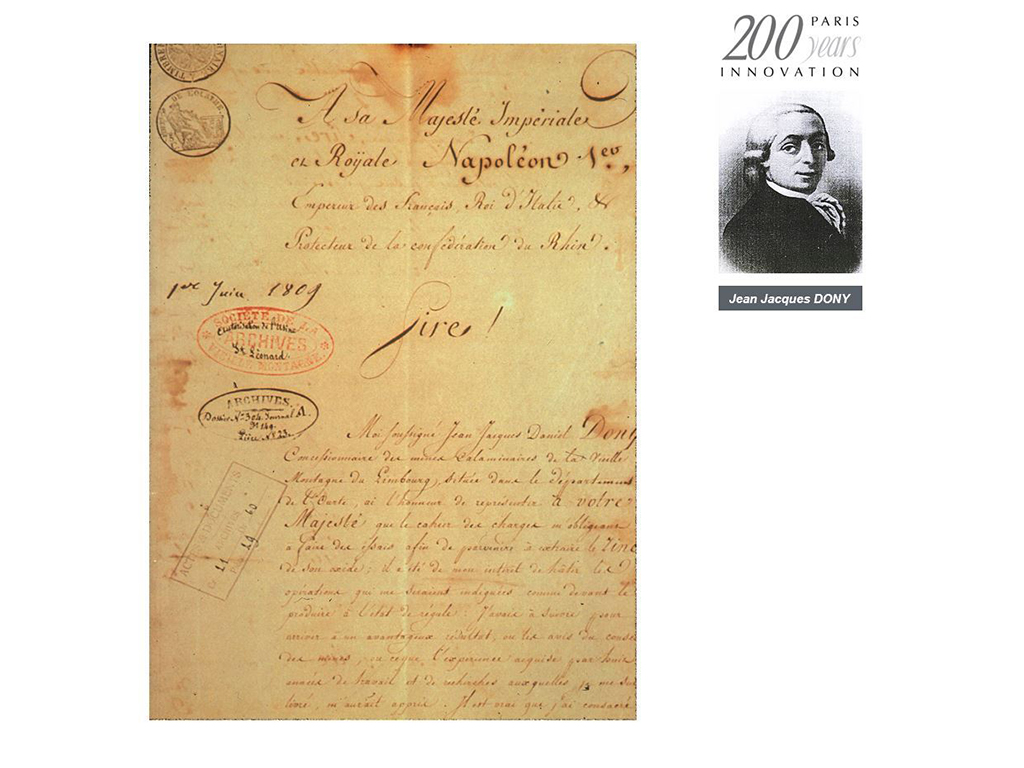 200 PARIS
years
INNOVATION
Jean Jacques DONY
DE L'OURTHE.
A sa Majesté Impériale
et Roÿale Napoléon 1er,
Empereur des Français, Roi d'Italie, &
Protecteur de la confédération du Rhin.
1er Juin 1809
Sire!
SOCIÉTÉ DE LA
Autorisation de l'Usine
ARCHIVES
St Léonard.
VIEILLE MONTAGNE
ARCHIVES.
Dossier No 304. Journal A.
No 149.
Pièce No 23.
Moi soussigné Jean Jacques Daniel Dony
Concessionnaire des mines Calaminaires de la Vieille
Montagne du Limbourg, située dans le Département
de l'Ourte, ai l'honneur de représenter à votre
Majesté que le cahier des charges m'obligeant
a faire des essais afin de parvenir à extraire le Zinc
de son oxide; il a été de mon intérêt de hâter les
opérations qui me seraient indiquées comme devant le
produire à l'état de régule. J'avais à suivre pour
arriver à un avantageux résultat, ou les avis du conseil
des mines, ou ceque l'expérience acquise par
années de travail et de recherches auxquelles je me suis
livré, m'aurait appris. Il est vrai que j'ai consacré